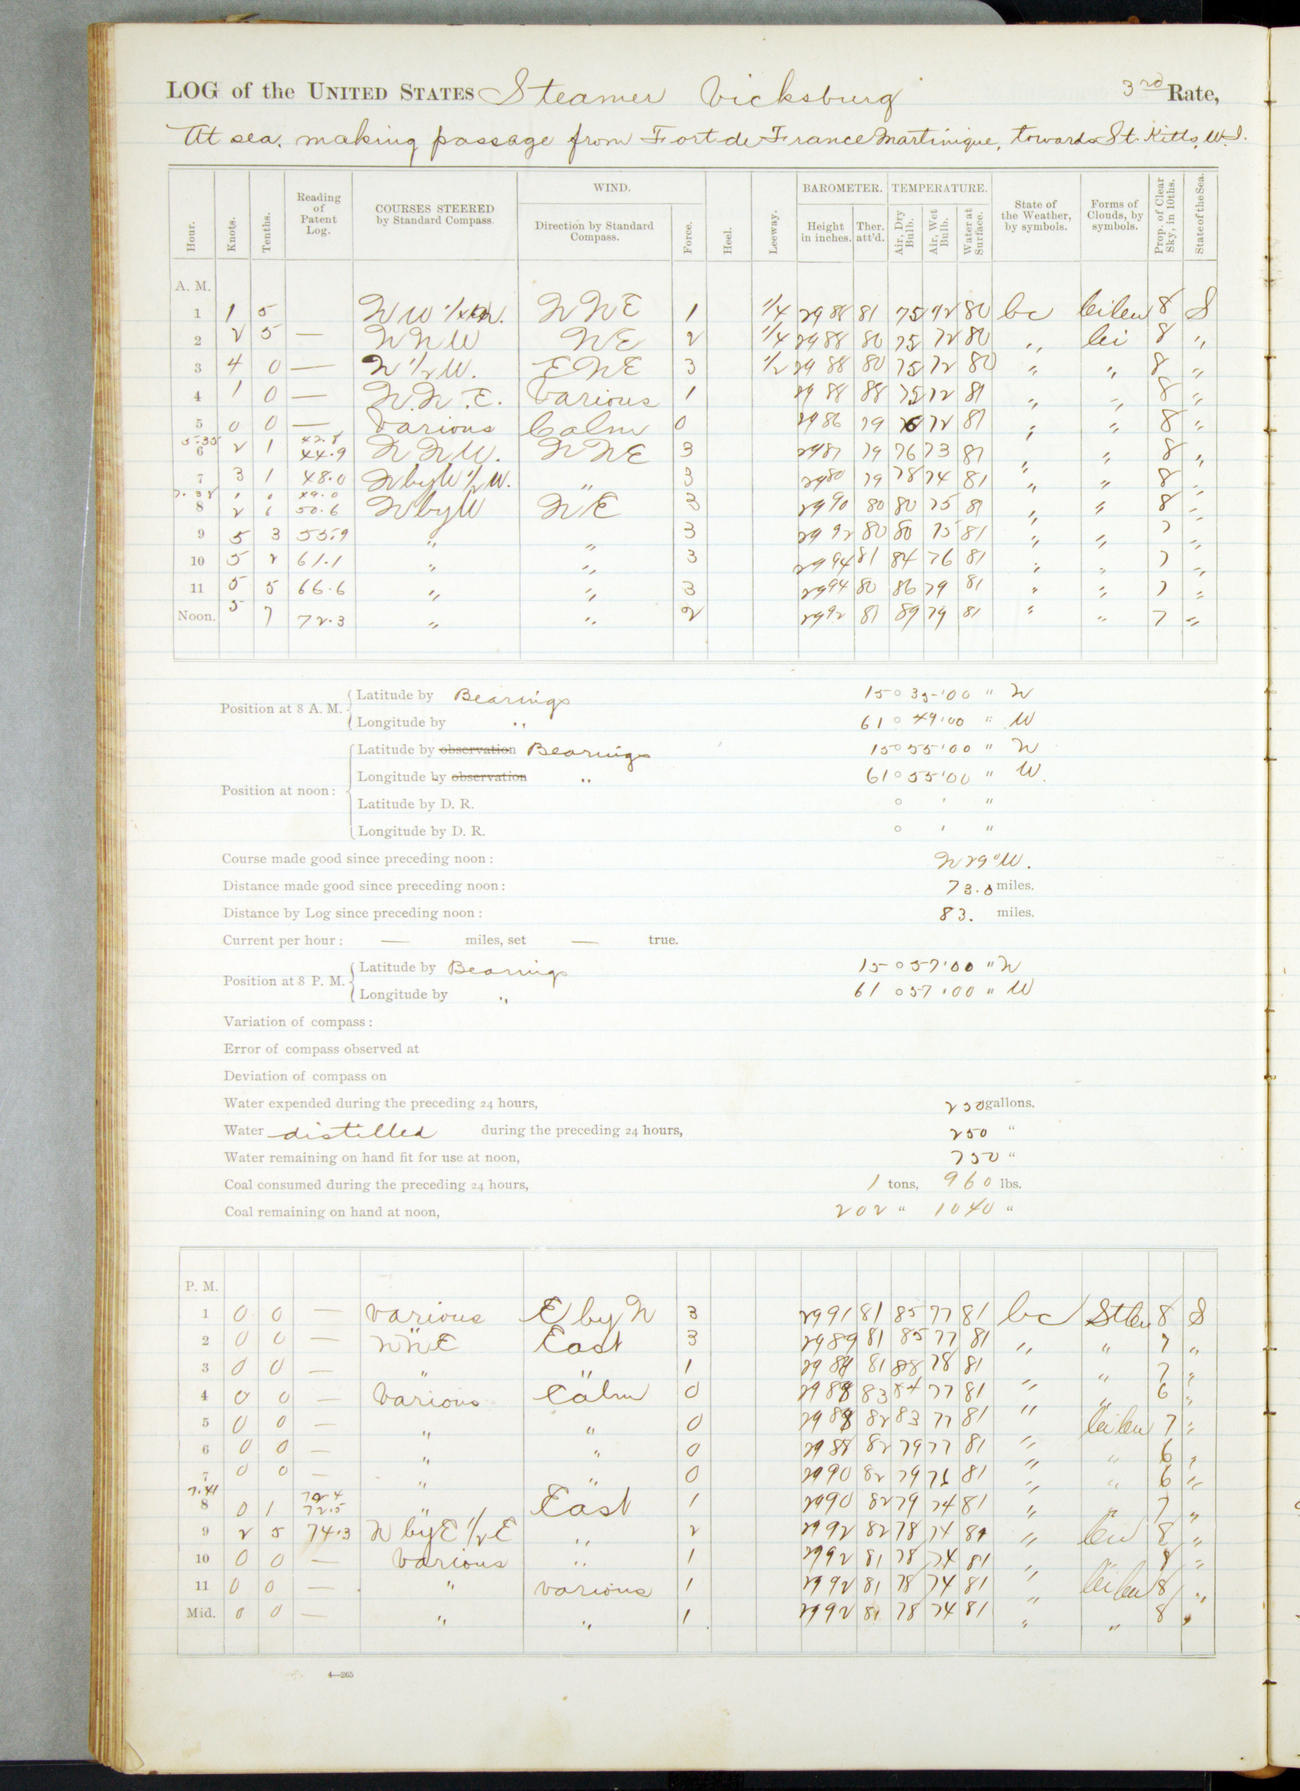 LOG of the UNITED STATES Steamer Vicksburg 3rd Rate,
At sea. making passage from Fort de France Martinique, towards St. Kitts, W.I.
Hour. Knots. Tenths. Reading of Patent Log. COURSES STEERED by Standard Compass. WIND. Direction by Standard Compass. Force. Heel. Leeway. BAROMETER. Height in inches. Ther. att'd. TEMPERATURE. Air, Dry Bulb. Air, Wet Bulb. Water at Surface. State of the Weather, by symbols. Forms of Clouds, by symbols. Prop. of Clear Sky, in 10ths. State of the Sea.
A. M.
1 1 5 NNE 1 1/4 29 88 81 75 72 80 bc cicu 8 S
2 2 5 — NNW NE 2 1/4 29 88 80 75 72 80 " ci 8 "
3 4 0 — N 1/2 W. ENE 3 1/2 29 88 80 75 72 80 " " 8 "
4 1 0 — N.N.E. Various 1 29 88 88 75 72 81 " " 8 "
5 0 0 — Various Calm 0 29 86 79 76 72 81 " " 8 "
5.35 42.8
6 2 1 44.9 NNW. NNE 3 29 87 79 76 73 81 " " 8 "
7 3 1 48.0 NbyW 1/2 W. " 3 29 80 79 78 74 81 " " 8 "
7.38 49.0
8 2 1 50.6 NbyW NE 3 29 90 80 80 75 81 " " 8 "
9 5 3 55.9 " " 3 29 92 80 80 75 81 " " 7 "
10 5 2 61.1 " " 3 29 94 81 84 76 81 " " 7 "
11 5 5 66.6 " " 3 29 94 80 86 79 81 " " 7 "
Noon. 5 7 72.3 " " 2 29 92 81 89 79 81 " " 7 "
Position at 8 A. M. Latitude by Bearings 15° 35' 00" N
Longitude by " 61° 49' 00" W
Position at noon: Latitude by observation Bearings 15° 55' 00" N
Longitude by observation " 61° 55' 00" W.
Latitude by D. R. ° ' "
Longitude by D. R. ° ' "
Course made good since preceding noon: N 29° W.
Distance made good since preceding noon: 73.0 miles.
Distance by Log since preceding noon: 83. miles.
Current per hour: — miles, set — true.
Position at 8 P. M. Latitude by Bearings 15° 57' 00" N
Longitude by " 61° 57' 00" W
Variation of compass:
Error of compass observed at
Deviation of compass on
Water expended during the preceding 24 hours, 250 gallons.
Water distilled during the preceding 24 hours, 250 "
Water remaining on hand fit for use at noon, 750 "
Coal consumed during the preceding 24 hours, 1 tons, 960 lbs.
Coal remaining on hand at noon, 202 " 1040 "
P. M.
1 0 0 — Various E by N 3 29 91 81 85 77 81 bc Stcu 8 S
2 0 0 — NNE East 3 29 89 81 85 77 81 " " 7 "
3 0 0 — " " 1 29 89 81 88 78 81 " 7 "
4 0 0 — Various Calm 0 29 88 83 84 77 81 " " 6 "
5 0 0 — " " 0 29 88 82 83 77 81 " cicu 7 "
6 0 0 — " " 0 29 88 82 79 77 81 " " 6 "
7 0 0 — " " 0 29 90 82 79 76 81 " " 6 "
7.41 72.4
8 0 1 72.5 " East 1 29 90 82 79 74 81 " " 7 "
9 2 5 74.3 N byE 1/2 E " 2 29 92 82 78 74 81 " 8 "
10 0 0 — Various " 1 29 92 81 78 74 81 " " 8 "
11 0 0 — " Various 1 29 92 81 78 74 81 " cicu 8 "
Mid. 0 0 — " " 1 29 92 81 78 74 81 " " 8 "
4—265